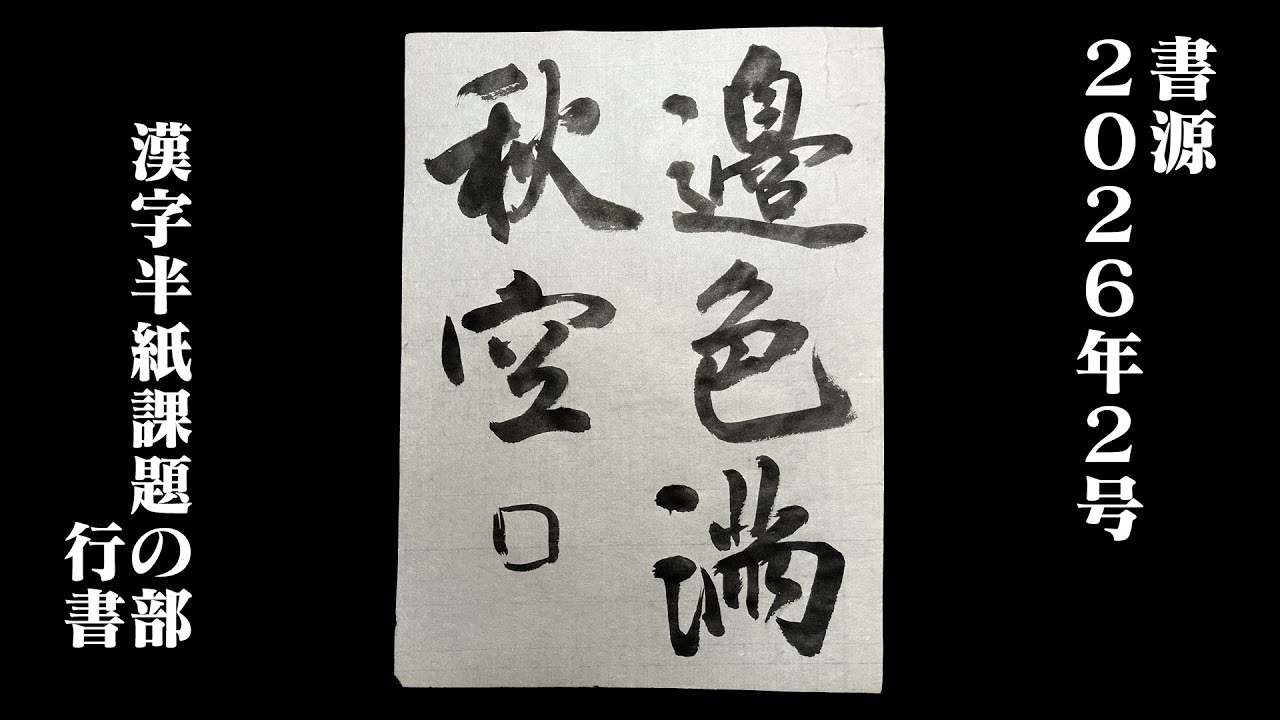 書源
２０２６年２号
邊色滿
秋空口
漢字半紙課題の部
行書